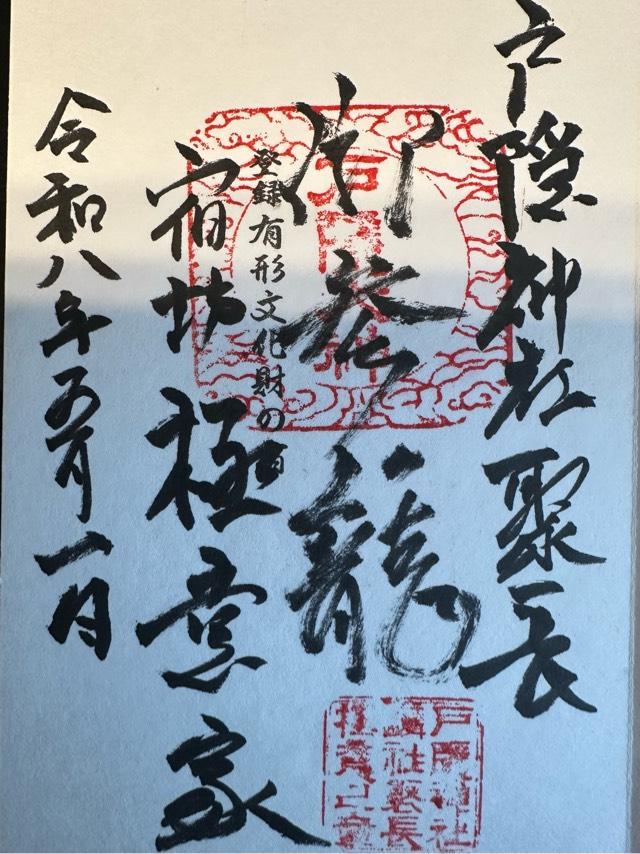 戸隠神社聚長
御参籠
登録有形文化財の宿
宿坊極意家
令和八年五月一日
戸隠神社